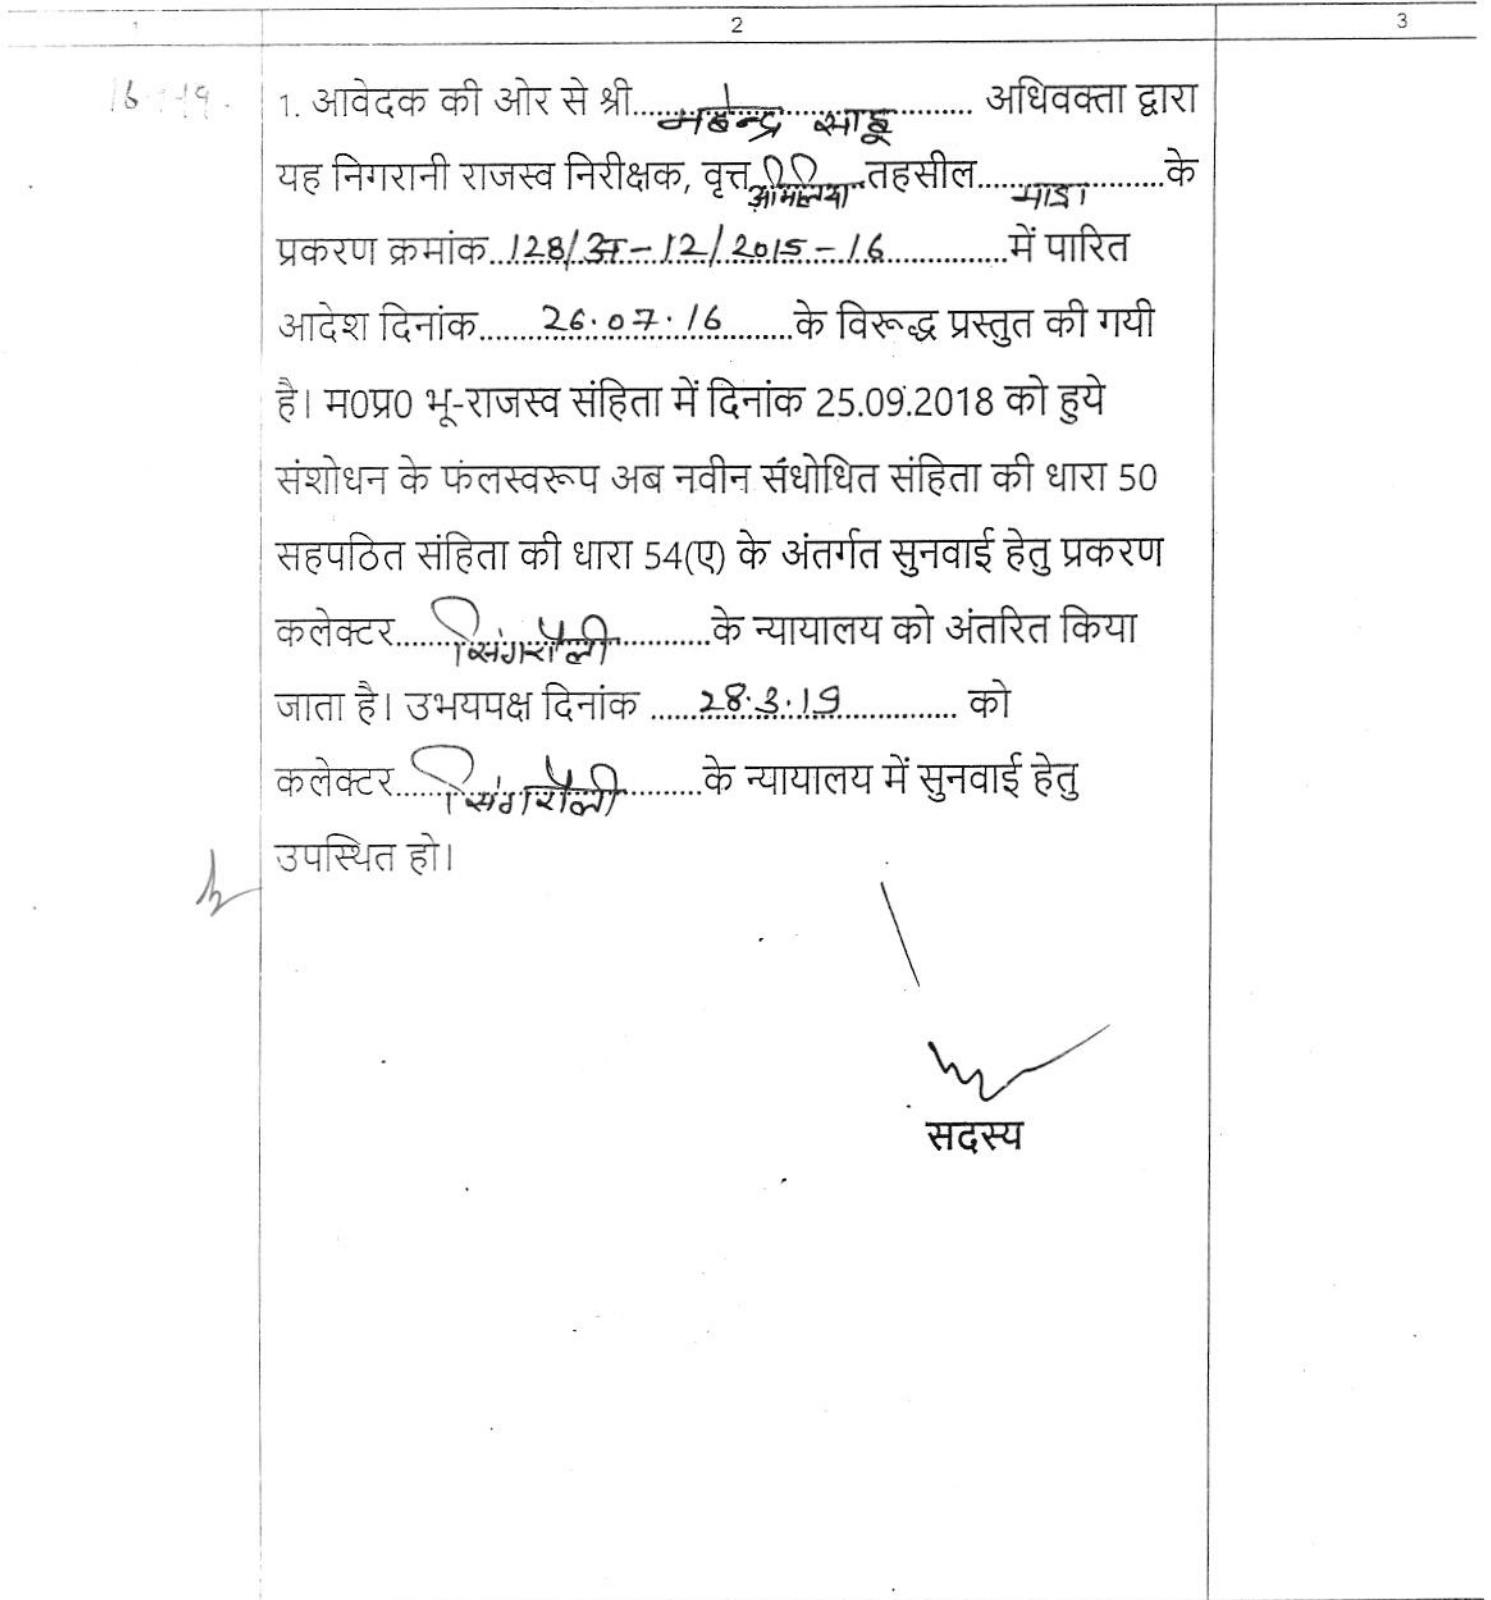 1 2 3
1. आवेदक की ओर से श्री.......... साहू .......... अधिवक्ता द्वारा
यह निगरानी राजस्व निरीक्षक, वृत्त..........तहसील....माडा....के
प्रकरण क्रमांक..128/अ-12/2015-16..........में पारित
आदेश दिनांक......26.07.16......के विरूद्ध प्रस्तुत की गयी
है। म0प्र0 भू-राजस्व संहिता में दिनांक 25.09.2018 को हुये
संशोधन के फलस्वरूप अब नवीन संधोधित संहिता की धारा 50
सहपठित संहिता की धारा 54(ए) के अंतर्गत सुनवाई हेतु प्रकरण
कलेक्टर......सिंगरौली......के न्यायालय को अंतरित किया
जाता है। उभयपक्ष दिनांक .....28.3.19.......... को
कलेक्टर......सिंगरौली......के न्यायालय में सुनवाई हेतु
उपस्थित हो।
सदस्य